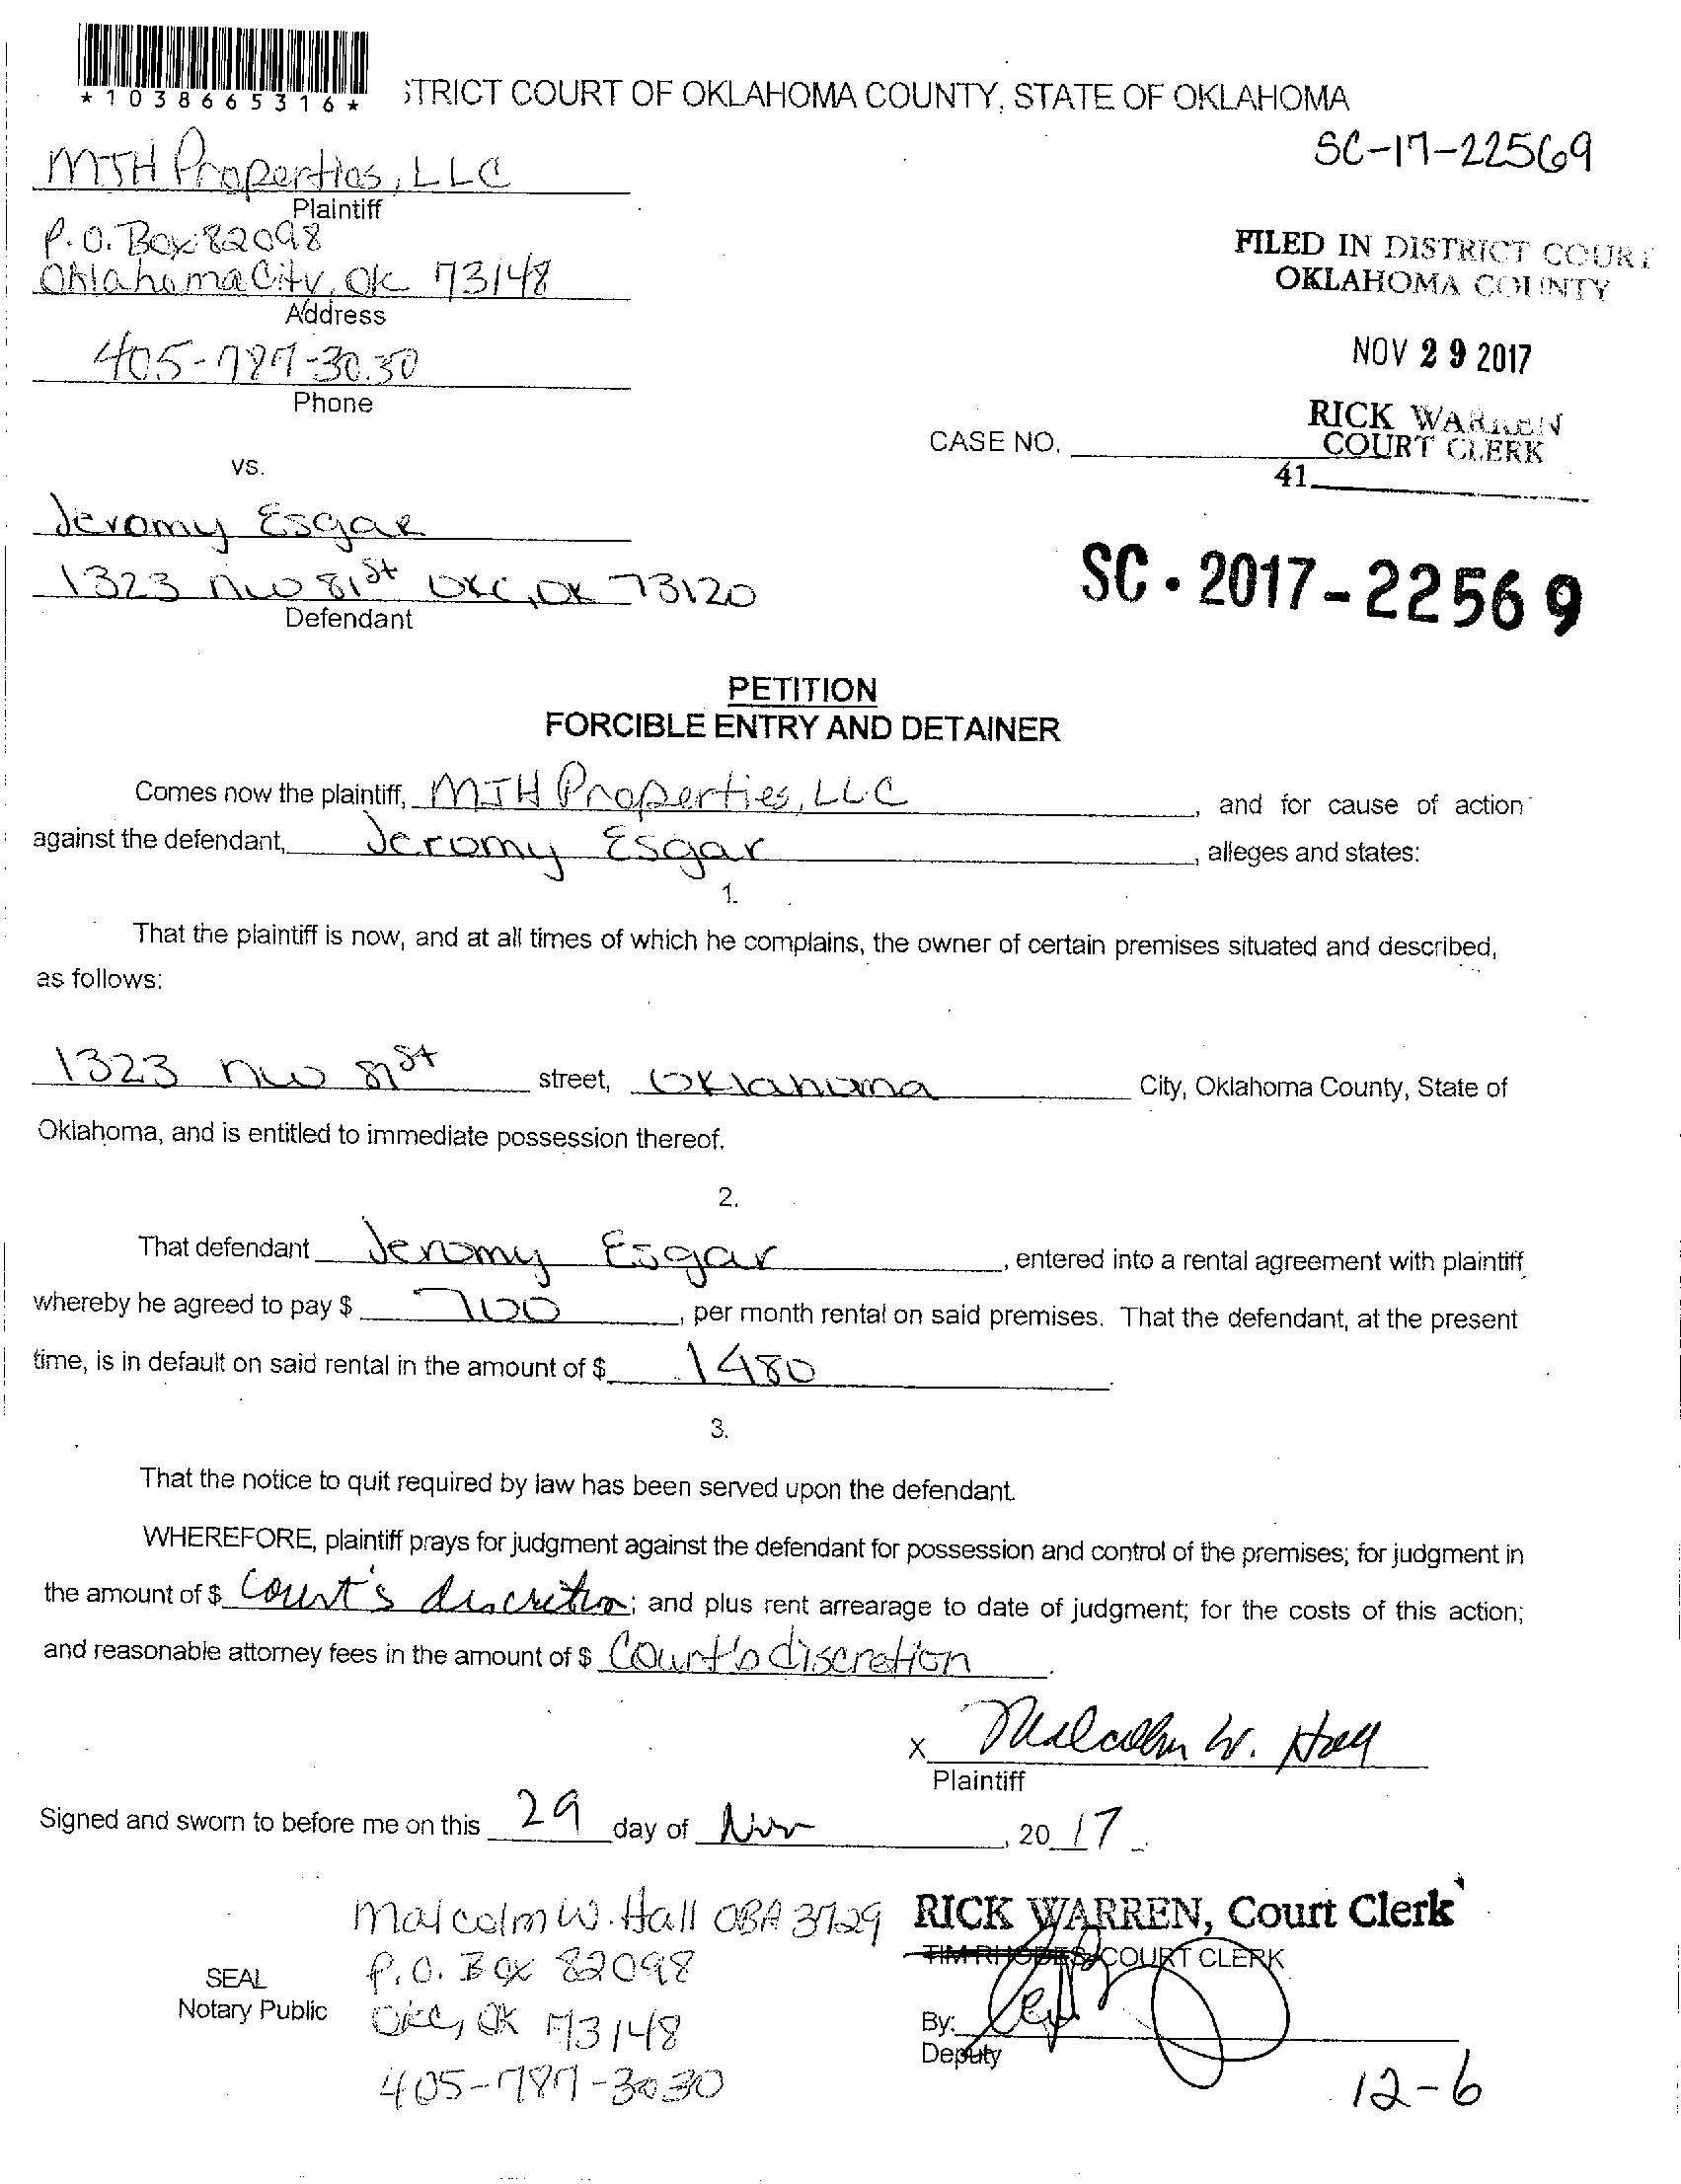 *1038665316*
STRICT COURT OF OKLAHOMA COUNTY, STATE OF OKLAHOMA
SC-17-22569
MJH Properties, LLC
Plaintiff
P.O. Box 82098
Oklahoma City, OK 73148
Address
405-787-3030
Phone
FILED IN DISTRICT COURT
OKLAHOMA COUNTY
NOV 29 2017
RICK WARREN
COURT CLERK
41
CASE NO.
vs.
Jeromy Esgar
1323 NW 81st OKC, OK 73120
Defendant
SC·2017-22569
PETITION
FORCIBLE ENTRY AND DETAINER
Comes now the plaintiff, MJH Properties, LLC, and for cause of action
against the defendant, Jeromy Esgar, alleges and states:
1.
That the plaintiff is now, and at all times of which he complains, the owner of certain premises situated and described,
as follows:
1323 NW 81st street, Oklahoma City, Oklahoma County, State of
Oklahoma, and is entitled to immediate possession thereof.
2.
That defendant Jeromy Esgar, entered into a rental agreement with plaintiff
whereby he agreed to pay $ 700, per month rental on said premises. That the defendant, at the present
time, is in default on said rental in the amount of $ 1480.
3.
That the notice to quit required by law has been served upon the defendant.
WHEREFORE, plaintiff prays for judgment against the defendant for possession and control of the premises; for judgment in
the amount of $ Court's discretion; and plus rent arrearage to date of judgment; for the costs of this action;
and reasonable attorney fees in the amount of $ Court's discretion.
X Malcolm W. Hall
Plaintiff
Signed and sworn to before me on this 29 day of Nov, 20 17.
Malcolm W. Hall OBA 3729
P.O. Box 82098
OKC, OK 73148
405-787-3030
SEAL
Notary Public
RICK WARREN, Court Clerk
TIM RHODES, COURT CLERK
By:
Deputy
12-6